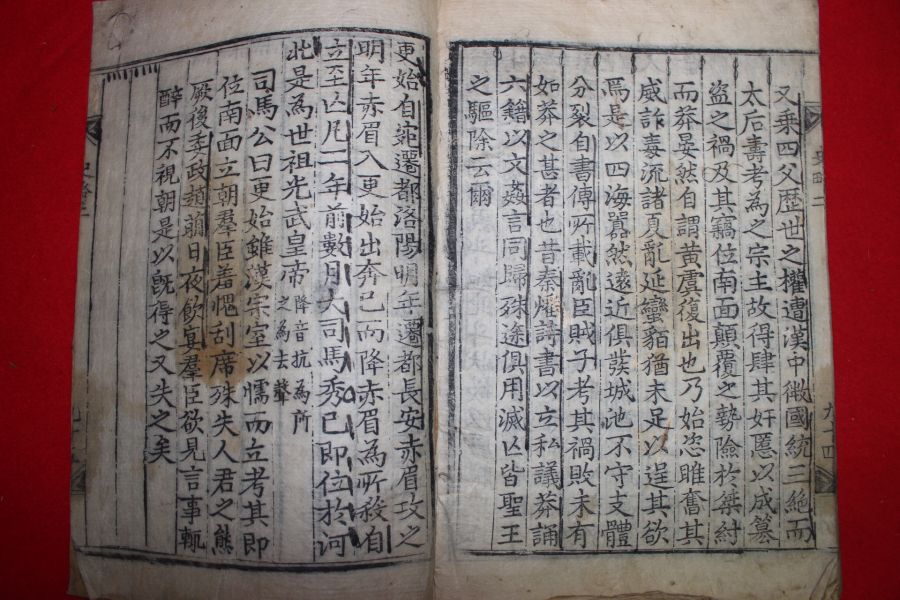 又乗四父歷世之權遭漢中微國統三絶而
太后壽考為之宗主故得肆其奸慝以成篡
盗之禍及其竊位南面顛覆之勢險於桀紂
而莽晏然自謂黄虞復出也乃始恣睢奮其
威詐毒流諸夏亂延蠻貊猶未足以逞其欲
焉是以四海囂然遠近俱發城池不守支體
分裂自書傳所載亂臣賊子考其禍敗未有
如莽之甚者也昔秦燔詩書以立私議莽誦
六籍以文姦言同歸殊途俱用滅亾皆聖王
之驅除云爾
更始自宛遷都洛陽明年遷都長安赤眉攻之
明年赤眉入更始出奔已而降赤眉為所殺自
立至亾凡二年前數月大司馬秀已即位於河
北是為世祖光武皇帝降音抗為所之為去聲
司馬公曰更始雖漢宗室以懦而立考其即
位南面立朝羣臣羞愧刮席殊失人君之態
厥後委政趙萌日夜飲宴羣臣欲見言事輒
醉而不視朝是以旣得之又失之矣